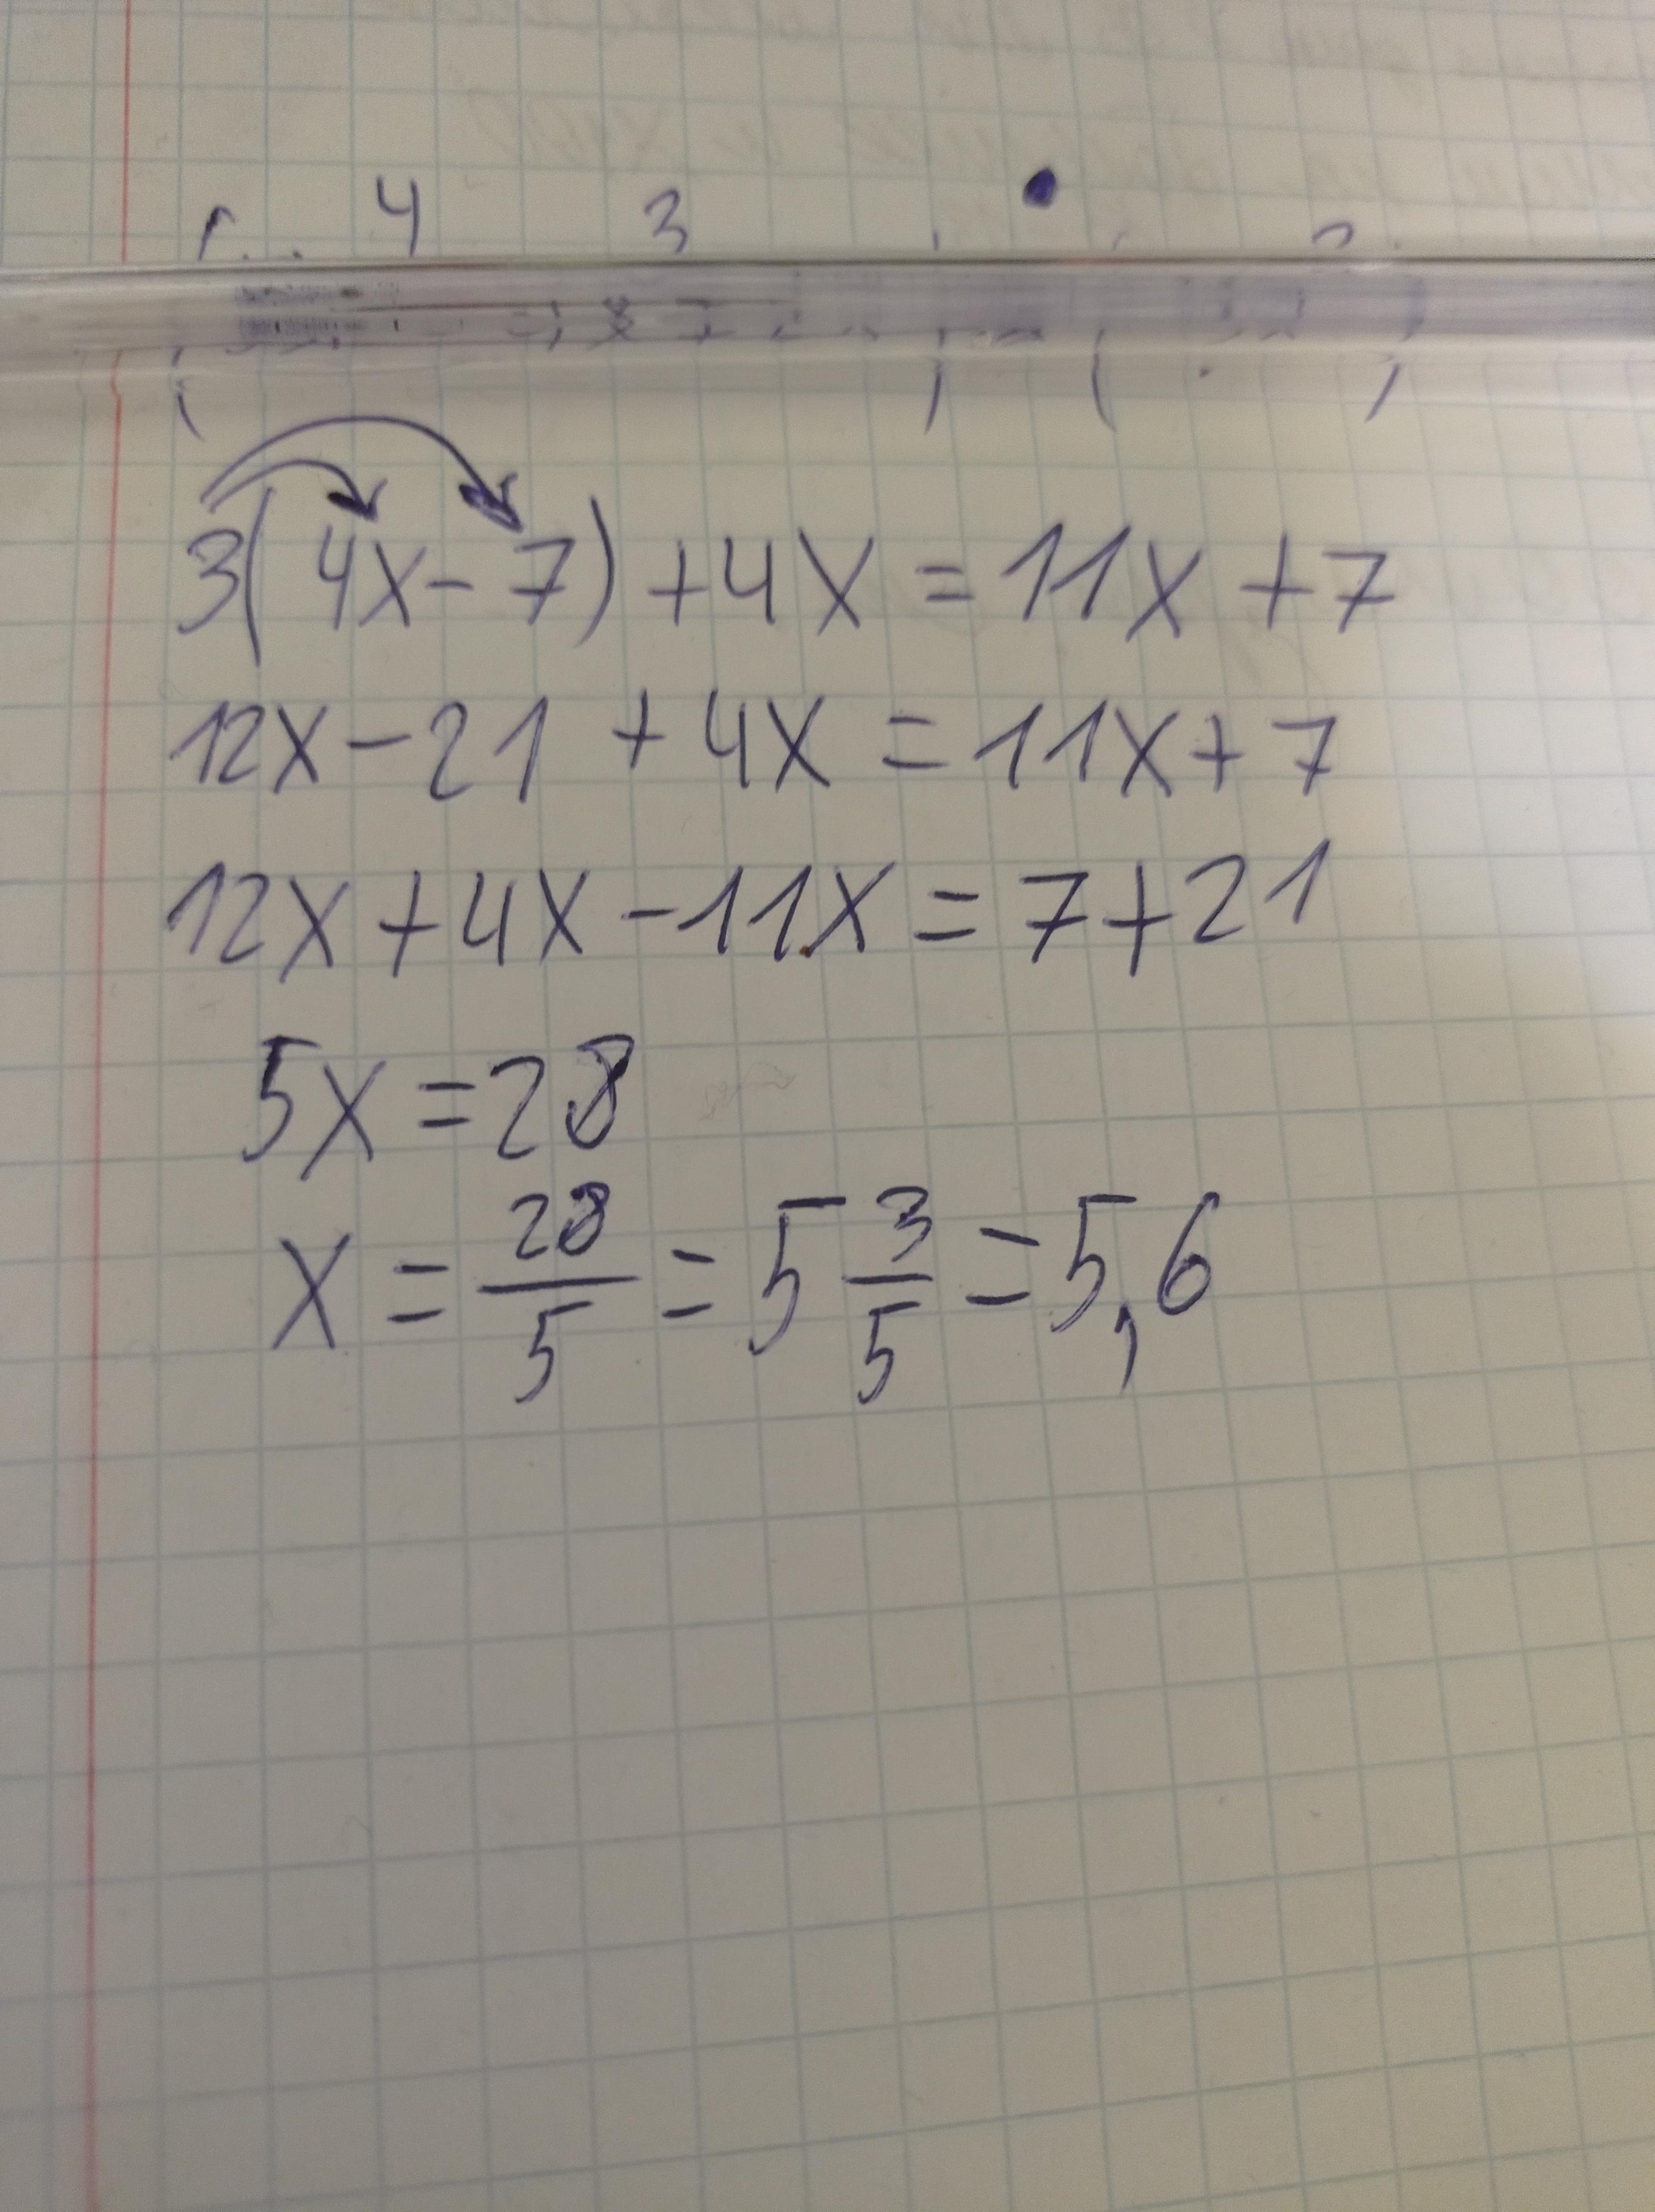 4 3
3(4x-7)+4x=11x+7
12x-21+4x=11x+7
12x+4x-11x=7+21
5x=28
x=28/5=5 3/5=5,6